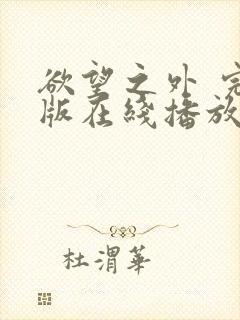 欲望之外 完
版在綫播放
杜渭華